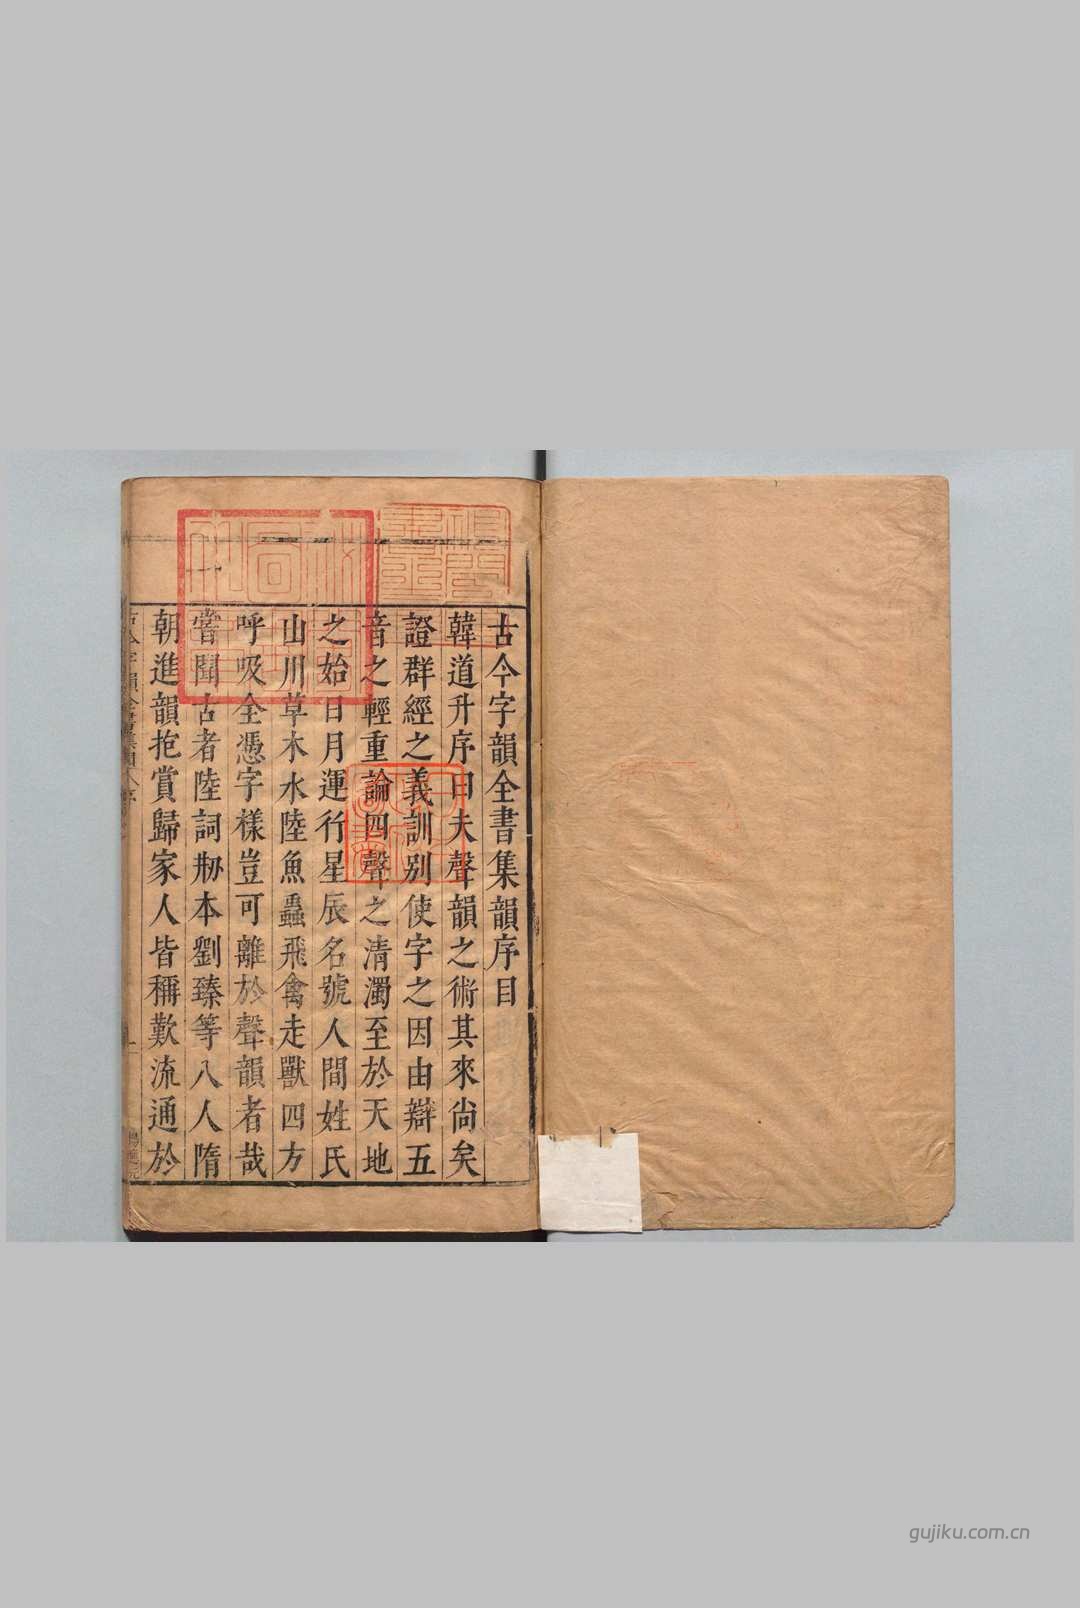 古今字韻全書集韻序目
韓道升序曰夫聲韻之術其來尚矣
證群經之義訓別使字之因由辯五
音之輕重論四聲之清濁至於天地
之始日月運行星辰名號人間姓氏
山川草木水陸魚蟲飛禽走獸四方
呼吸全憑字樣豈可離於聲韻者哉
嘗聞古者陸詞刱本劉臻等八人隋
朝進韻抱賞歸家人皆稱歎流通於
gujiku.com.cn